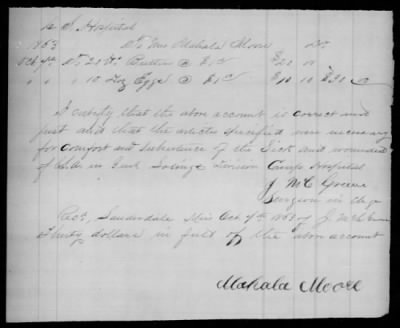 C. S. Hospital
1863 To Mrs Mahala Moore Dr.
Oct 7th To 20 lbs Butter @ $1.00 $20 00
" " " 10 Doz Eggs @ $1.00 $10 10 $30 00
I certify that the above account is correct and
just and that the articles specified were necessary
for comfort and subsistence of the Sick and wounded
of in Division Camp Hospital
J McC Greene
Surgeon in chge
Rec, Lauderdale Miss Oct 7th 1863 of J McC Greene
thirty dollars in full of the above account
Mahala Moore